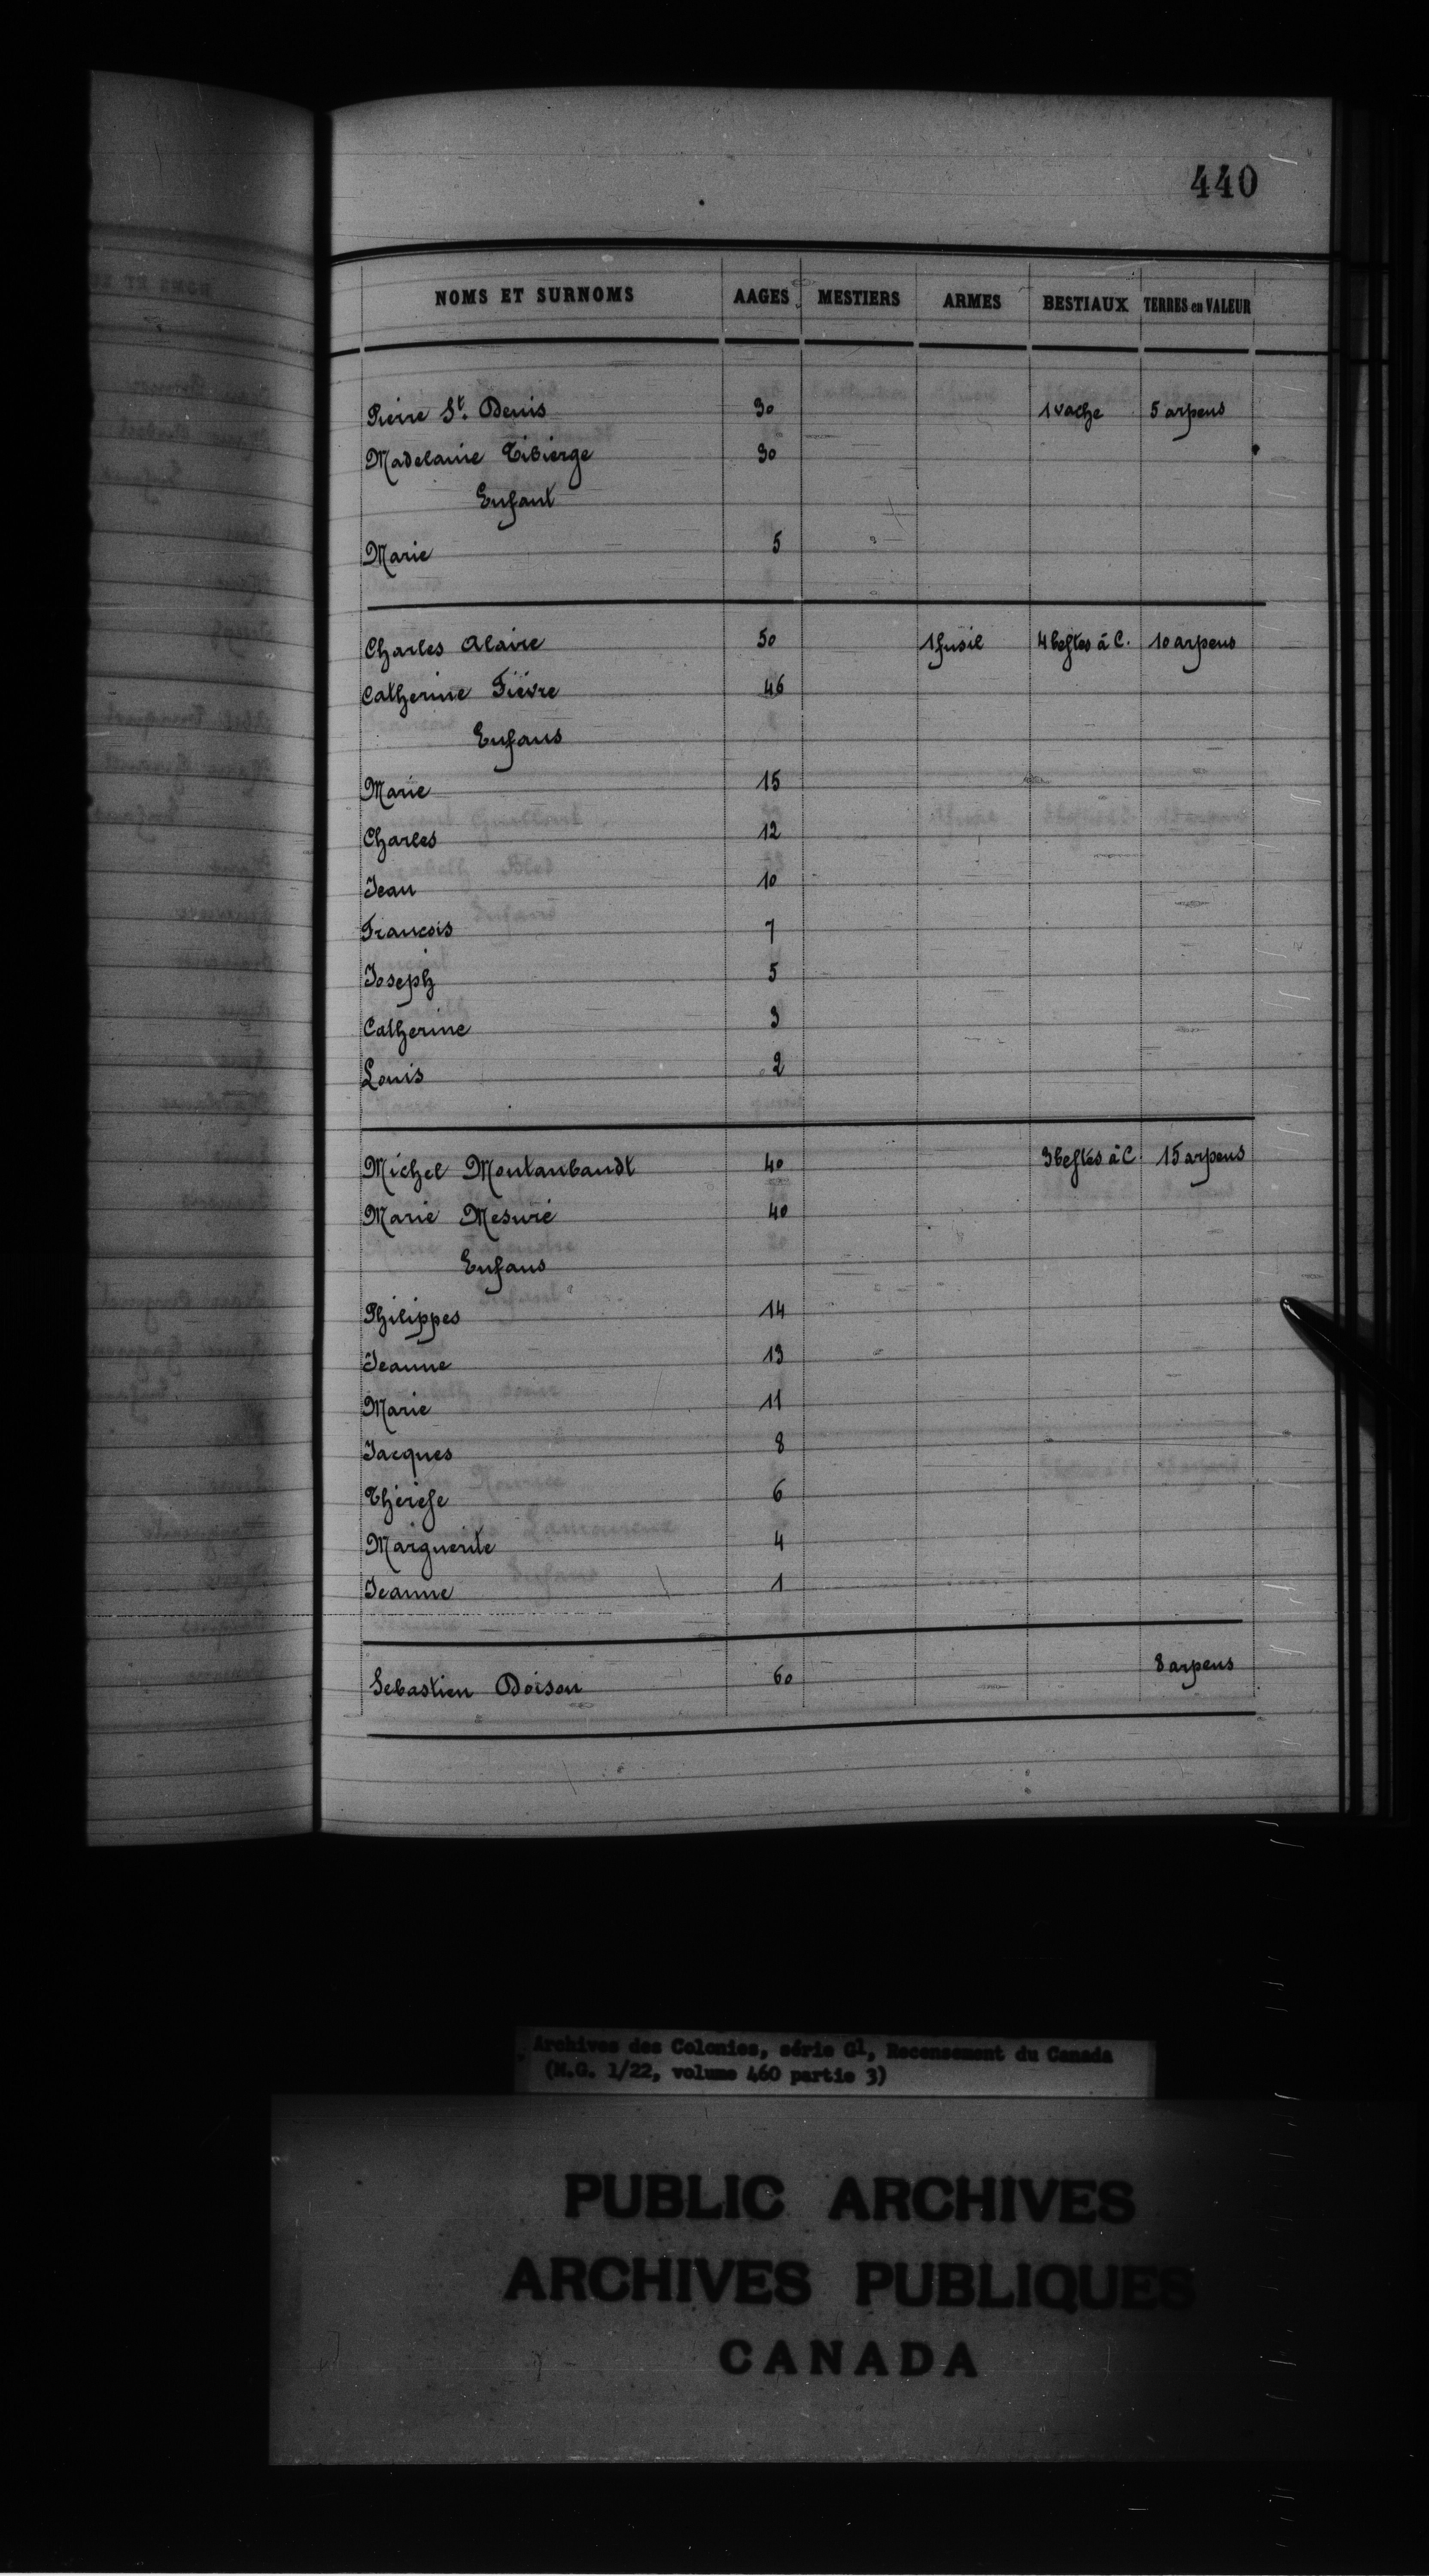 440
NOMS ET SURNOMS AAGES MESTIERS ARMES BESTIAUX TERRES en VALEUR
Pierre St. Denis 30 1 vache 5 arpens
Madelaine Tibierge 30
Enfant
Marie 5
Charles Alaire 50 1 fusil 4 bestes à C. 10 arpens
Catherine Fièvre 46
Enfans
Marie 15
Charles 12
Jean 10
Francois 7
Joseph 5
Catherine 3
Louis 2
Michel Montanbaudt 40 3 bestes à C. 15 arpens
Marie Mesuré 40
Enfans
Philippes 14
Jeanne 13
Marie 11
Jacques 8
Thérèse 6
Marguerite 4
Jeanne 1
Sebastien Doison 60 8 arpens
Archives des Colonies, série G1, Recensement du Canada
(M.G. 1/22, volume 460 partie 3)
PUBLIC ARCHIVES
ARCHIVES PUBLIQUES
CANADA